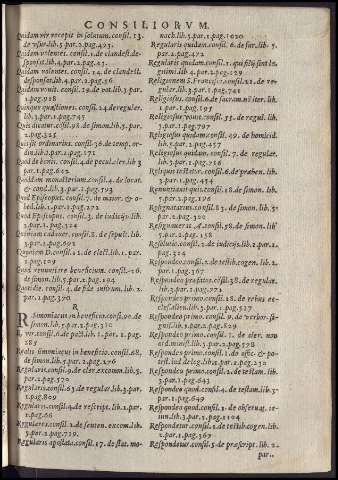 CONSILIORVM.
Quidam vir recepit in solutum. consil. 13.
de vsur. lib. 5. par. 2. pag. 421.
Quidam volentes. consil. 1. de clandest. de-
sponsat. lib. 4. par. 2. pag. 43.
Quidam volentes. consil. 14. de clandest.
desponsat. lib. 4. par. 2. pag. 56
Quidam vouit. consil. 29. de vot. lib. 3. par.
1. pag. 918
Quinque quæstiones. consil. 24. de regular.
lib. 3. par. 1. pag. 745
Quis dicatur. consil. 98. de simon. lib. 5. par.
2. pag. 325
Quis sit ordinarius. consil. 36. de temp. or-
din. lib. 1. par. 2. pag. 271
Quod de bonis. consil. 4. de pecul. cler. lib. 3
par. 1. pag. 622
Quoddam monasterium. consil. 4. de locat.
& cond. lib. 3. par. 1. pag. 593
Quod Episcopus. consil. 7. de maior. & o-
bed. lib. 1. par. 2. pag. 272
Quod Episcopus. consil. 3. de iudicijs. lib.
2. par. 1. pag. 324
Quoniam cadauer. consil. 8. de sepult. lib.
3. par. 1. pag. 692
lib. 1. par.
2. pag. 109
Quod renuntiare beneficium. consil. 26.
de simon. lib. 5. par. 2. pag. 194
consil. 4. de fide instrum. lib. 2.
par. 1. pag. 370
R
R Simoniacus in beneficio. consil. 90. de
simon. lib. 5. par. 2. pag. 310
consil. 6. de pact. lib. 1. par. 2. pag.
285
simoniacus in beneficio. consil. 68.
de simon. lib. 5. par. 2. pag. 276
Regularis. consil. 9. de cler. excomm. lib. 5.
par. 2. pag. 570
Regularis. consil. 63. de regular. lib. 3. par.
1. pag. 809
Regularis. consil. 4. de rescript. lib. 1. par.
1. pag. 66
Regulares. consil. 2. de senten. excom. lib.
5. par. 2. pag. 739.
Regularis apostata. consil. 17. de stat. mo-
nach. lib. 3. par. 1. pag. 1020
Regularis quidam. consil. 6. de fur. lib. 5.
par. 2. pag.
Religionem. consil. 1. qui filij sint le-
gitimi. lib. 4. par. 2. pag. 129
Religiosus S. Francisci. consil. 22. de re-
gular. lib. 3. par. 1. pag. 741
Religiosus. consil. 6. de sacram. nõ iter. lib.
1. par. 2. pag. 195
Religiosus vouit. consil. 53. de regul. lib.
3. par. 1. pag. 797
Religiosus quidam. consil. 49. de homicid.
lib. 5. par. 2. pag. 457
Religiosus quidam. consil. 7. de regular.
lib. 3. par. 1. pag. 716
Reliquit testator. consil. 6. de præben. lib.
3. par. 1. pag. 454
Renuntiauit quis. consil. 18. de simon. lib.
5. par. 2. pag. 196
Resignatarius. consil. 83. de simon. lib. 5.
par. 2. pag. 300
consil. 58. de simon. lib.
5. par. 2. pag. 158
Resolutio. consil. 2. de iudicijs. lib. 2. par. 1.
pag. 324
Respondeo. consil. 2. de testib. cogen. lib. 2.
par. 1. pag. 367
Respondeo præfatus. consil. 38. de regular.
lib. 3. par. 1. pag. 771
Respondeo primo. consil. 18. de rebus ec-
cles. alien. lib. 3. par. 1. pag. 517
Respondeo primo. consil. 9. de verbor. si-
gnif. lib. 5. par. 2. pag. 829
Respondeo primo. consil. 7. de cler. non
ord. minist. lib. 5. par. 2. pag. 578
Respondeo primo. consil. 1. de offic. & po-
test. iud. deleg. lib. 1. par. 2. pag. 233
Respondeo primo. consil. 2. de testam. lib.
3. par. 1. pag. 643
Respondeo quod. consil. 4. de testam. lib. 3.
par. 1. pag. 649
Respondeo quod. consil. 3. de obseruat. ie-
iun. lib. 3. par. 1. pag. 1104
Respondetur. consil. 1. de testib. cogen. lib.
2. par. 1. pag. 367
Respondetur. consil. 5. de præscript. lib. 2.
par..